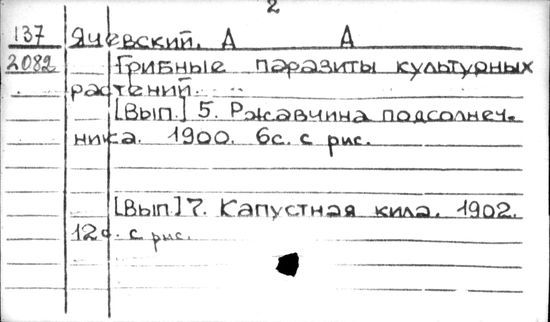 2
137 Ячевский, А А
2082 Грибные паразиты культурных
растений.
[Вып.] 5. Ржавчина подсолнеч-
ника. 1900. 6с. с рис.
[Вып.] 7. Капустная кила. 1902.
12с. с рис.